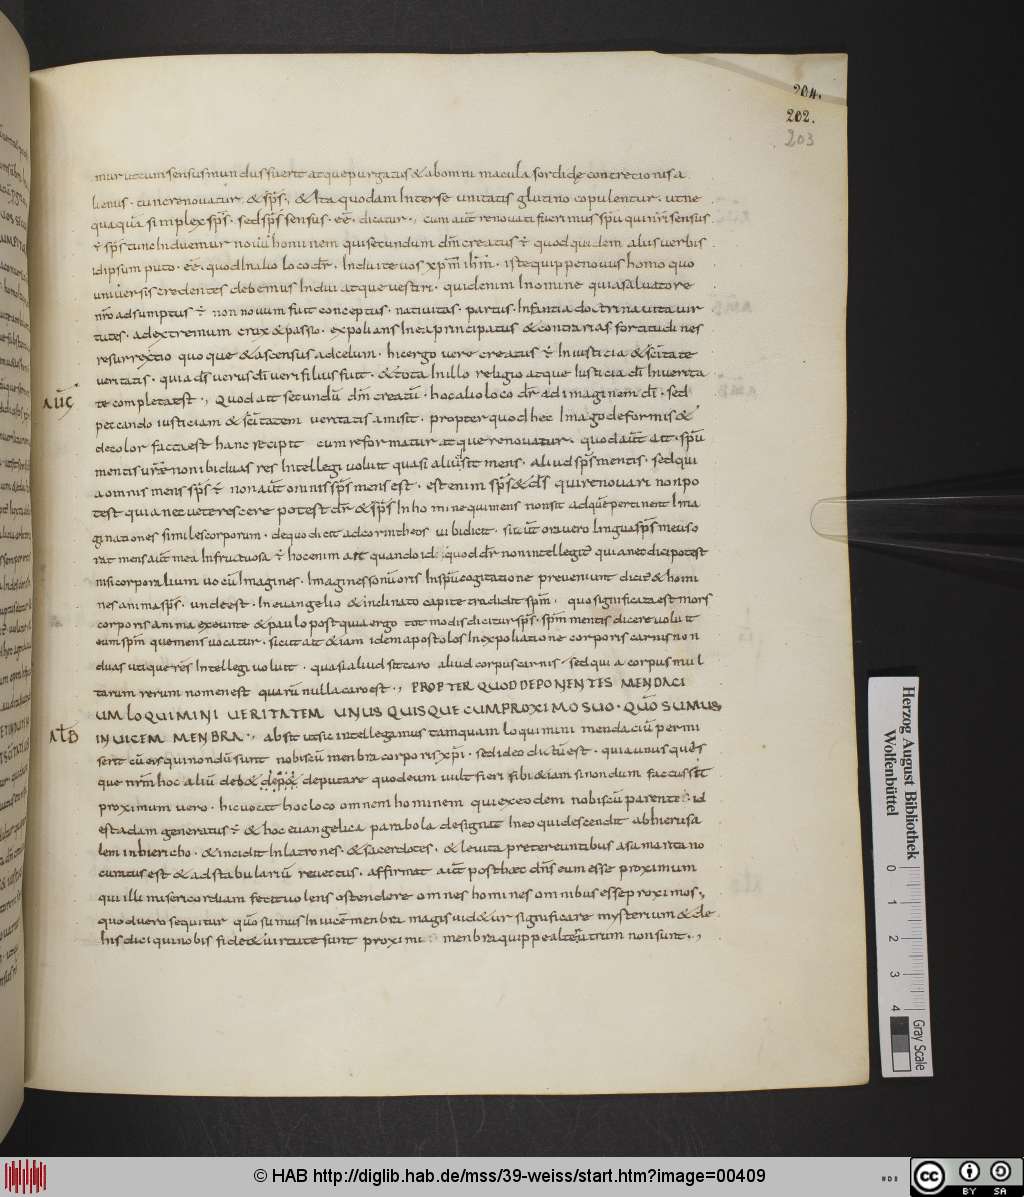 204.
202.
203
mur ut cum sensus mundus fuerit atque purgatus & abomni macula sordide concretionis a
lienus . tunc renovatur . & sps ., & Ita quodam Interse unitatis glutino copulentur . ut ne
quaquā simplex sps . sed sps sensus . eē . dicatur ., cum aut renovati fuerimus spu quinri sensus
ē sps tunc Induemur novū hominem qui secundum dm creatus ē quod quidem alus verbis
id ipsum puto . eē . quod In alio loco dr . Induite vos xpm ihm . iste quippe novus homo quo
universis credentes debemus Indui atque vestiri . quid enim In omine quia salvatore
nro adsumptus ē non novum fuit conceptus . nativitas . partus . Infantia doctrina vita vir
tutes . ad extremum crux & passio . expolians In ea principatus & contrarias fortitudines
resurrextio quoque & ascensus ad celum . hic ergo vere creatus ē In iusticia & scitate
veritatis . quia ds verus di veri filius fuit . & tota In illo religio atque Iusticia di In verita
AUG te completa est ., Quod ait secundū dm creatū . hoc alio loco dr ad imaginem di . sed
peccando iusticiam & scitatem veritatis amisit . propter quod hec Imago deformis &
decolor facta est hanc recipit cum reformatur atque renovatur . quod aut ait . spū
mentis vre non ibi duas res Intellegi voluit quasi aliud sit mens . aliud sps mentis . sed qui
a omnis mens sps ē non aut omnis sps mens est . est enim sps & ds qui renovari non po
test quia nec veterescere potest dr & sps In homine qui mens non sit ad quē pertinent Ima
ginationes similes corporum . de quo dicit ad corintheos ubi dicit . si aut oravero lingua sps meus o
rat mens aut mea Infructuosa ē hoc enim ait quando id quod dr non intellegit quia nec dici potest
nisi corporalium vocū Imagines . Imagines sonū oris In spu cogitatione preveniant dicit & homi
nes anima sps . unde est . In evangelio & inclinato capite tradidit spm . quo significata est mors
corporis anima exeunte & paulo post quia ergo tot modis dicitur sps . spm mentis dicere voluit
eum spm quem mens vocatur . sicut ait & iam idem apostolos In expoliatione corporis carnis non
duas utique res Intellegi voluit . quasi aliud sit caro aliud corpus carnis . sed quia corpus mul
tarum rerum nomen est quarū nulla caro est ., PROPTER QUOD DEPONENTES MENDACI
UM LOQUIMINI VERITATEM UNUS QUISQUE CUM PROXIMO SUO . QUO SUMUS
ATB INVICEM MENBRA ., absit ut sic intellegamus tamquam loqui mini mendaciū permi
serit cū eis qui nondū sunt nobiscū menbra corporis xpi . sed ideo dictū est . quia unus quis
que nrm hoc aliū deb& dep& deputare quod eum vult fieri sibi & iam si nondum factus sit
proximum vero . hic vocat hoc loco omnem hominem qui ex eodem nobiscū parente id
est adam generatus ē & hoc evangelica parabola designat In eo qui descendit ab hierusa
lem in hiericho . & incidit In latrones . & sacerdotes . & levita pretereuntibus a samaritano
curatus est & ad stabulariū revectus . affirmat aut post haec dns eum esse proximum
qui illi misericordiam fecit volens ostendere omnes homines omnibus esse proximos .,
quod vero sequitur quo sumus In vicē menbra magis vid&ur significare mysterium & de
his dici qui nobis fide & virtute sunt proximi menbra quippe alterutrum non sunt .,
Herzog August Bibliothek
Wolfenbüttel
0 1 2 3 4
Gray Scale
© HAB http://diglib.hab.de/mss/39-weiss/start.htm?image=00409
cc BY SA